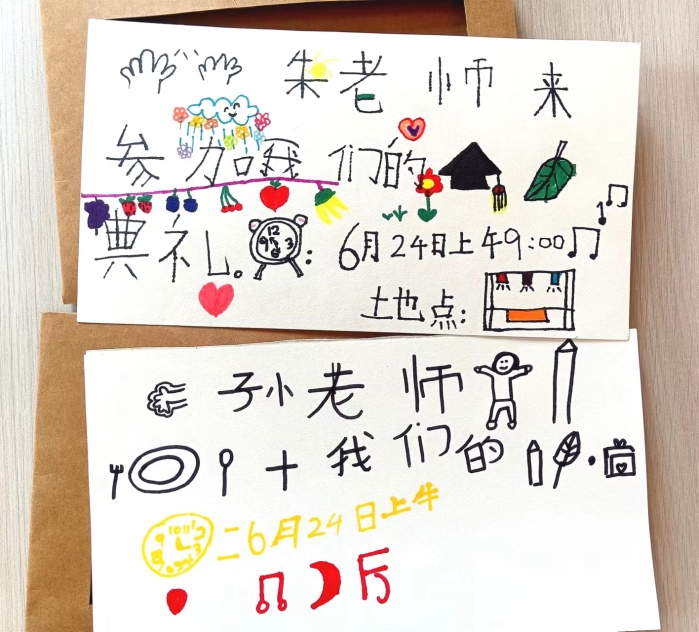 朱老师来
参加我们的
典礼。: 6月24日上午9:00
地点:
孙老师
+我们的
6月24日上午